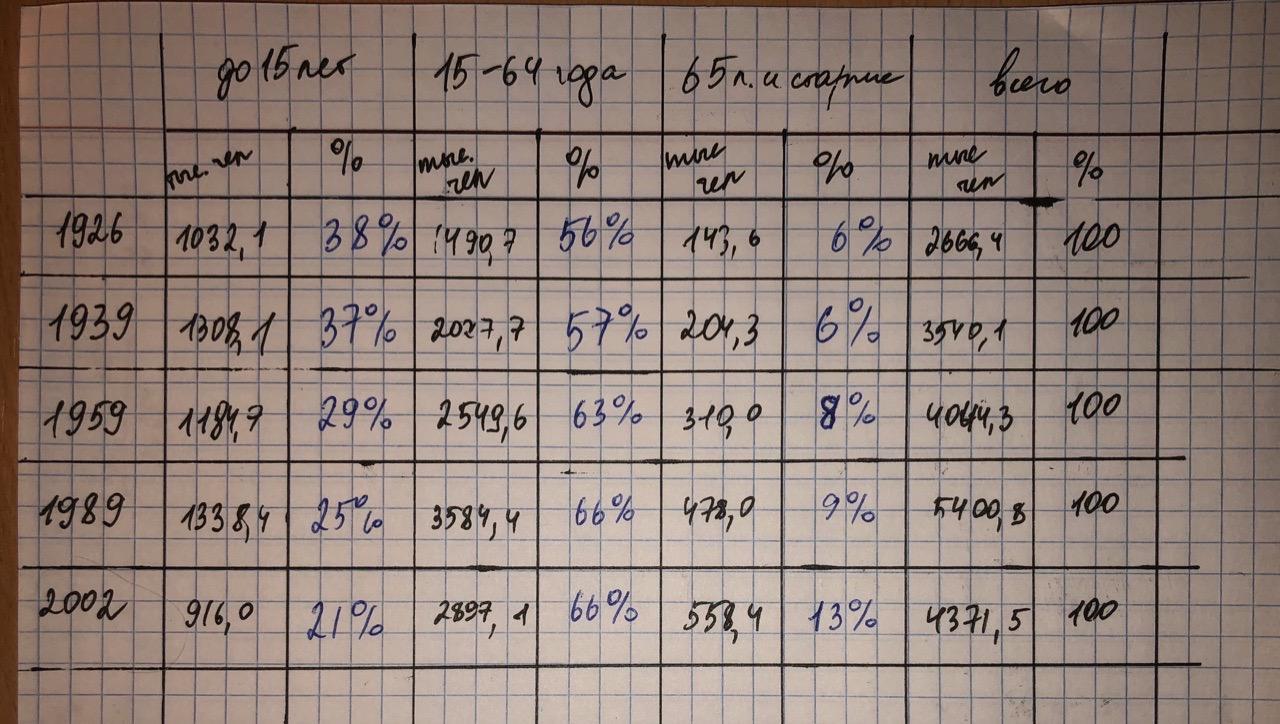 до 15 лет 15-64 года 65 л. и старше всего
тыс. чел % тыс. чел % тыс чел % тыс чел %
1926 1032,1 38% 1490,7 56% 143,6 6% 2666,4 100
1939 1308,1 37% 2027,7 57% 204,3 6% 3540,1 100
1959 1184,7 29% 2549,6 63% 310,0 8% 4044,3 100
1989 1338,4 25% 3584,4 66% 478,0 9% 5400,8 100
2002 916,0 21% 2897,1 66% 558,4 13% 4371,5 100